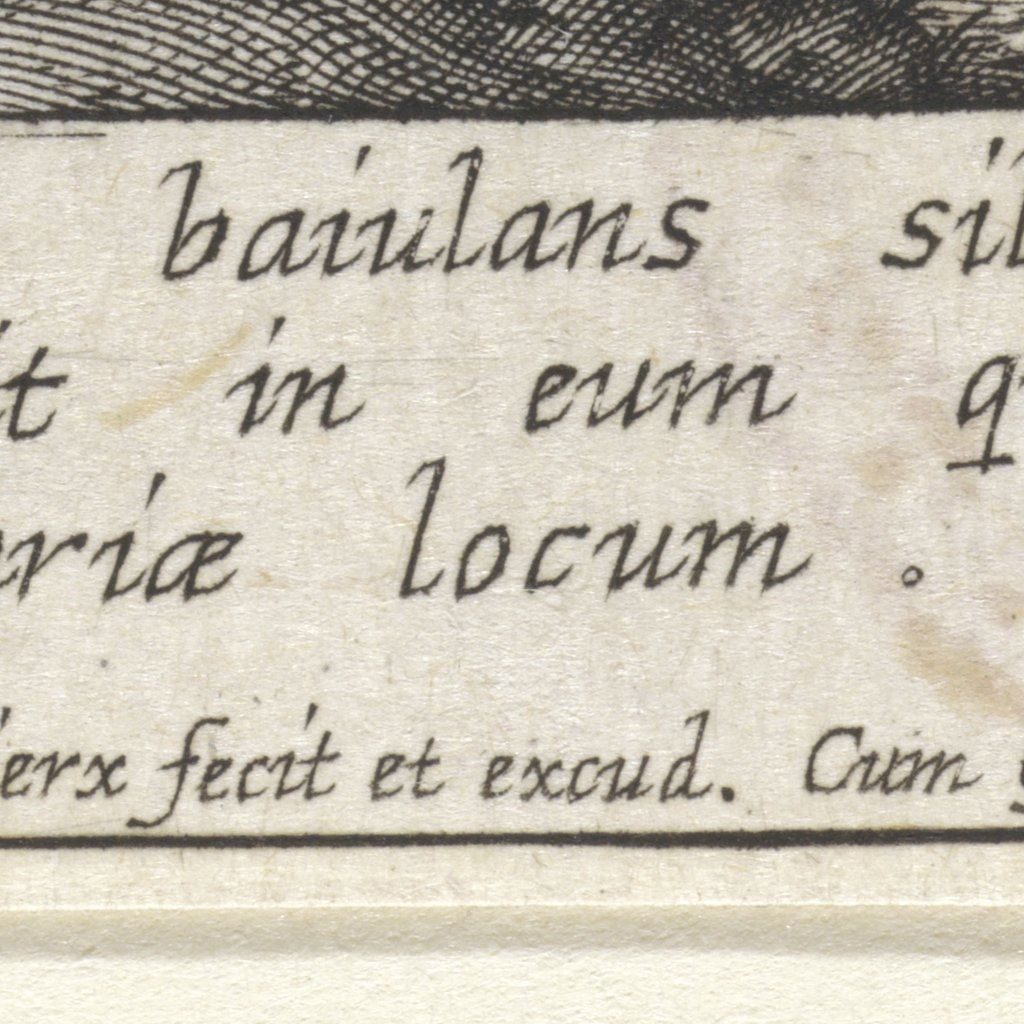 baiulans sib
it in eum q
eriæ locum .
ierx fecit et excud. Cum